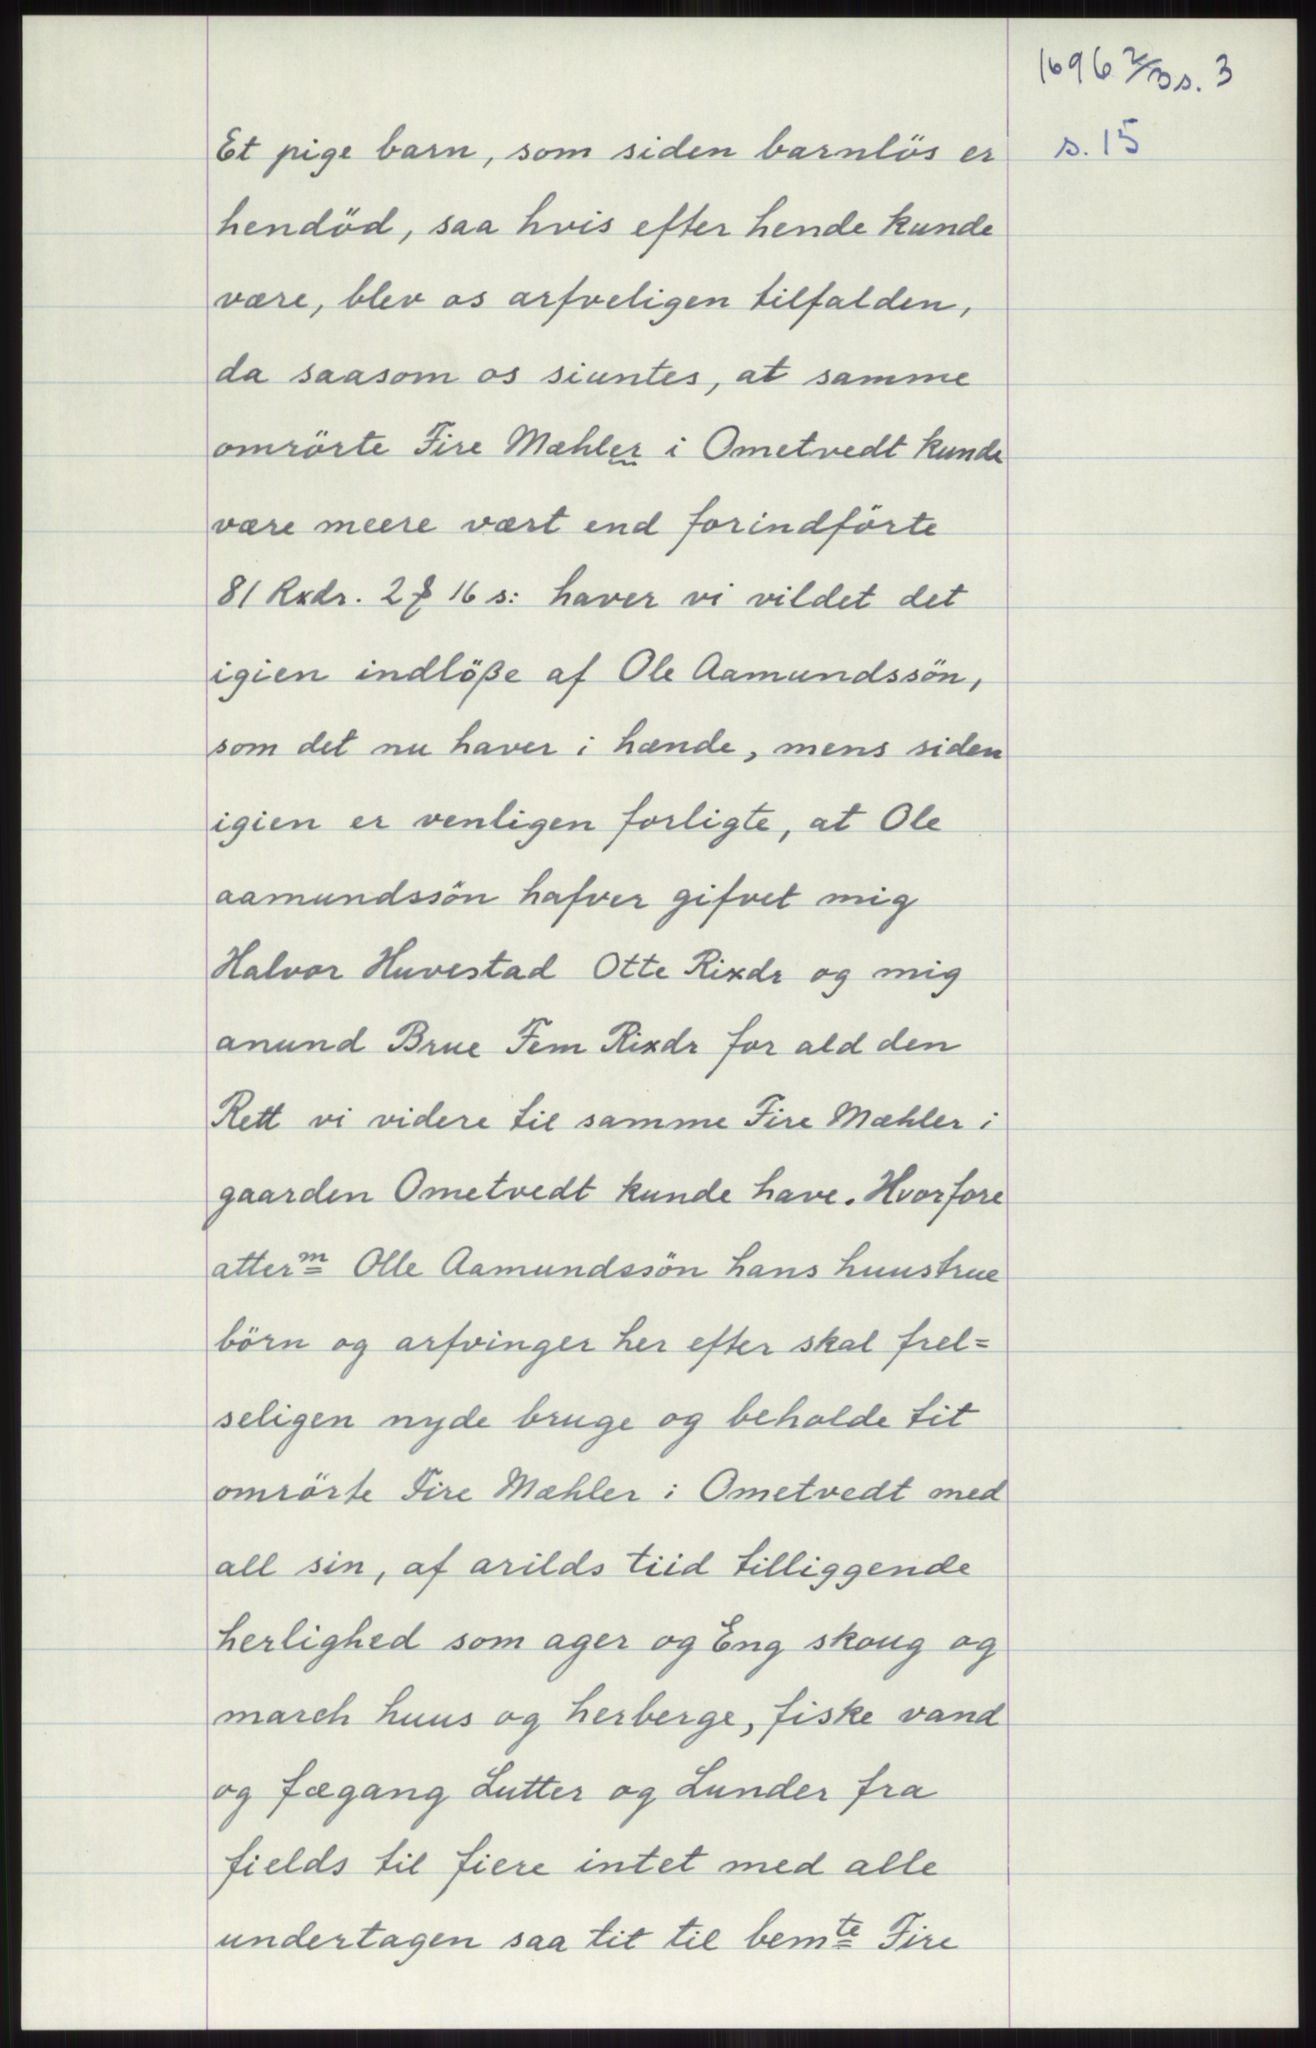 1696 2/3 s. 3
s. 15
Et pige barn, som siden barnlös er
hendöd, saa hvis efter hende kunde
være, blev os arfveligen tilfalden,
da saasom os siuntes, at samme
omrörte Fire Mæhler i Ometvedt kunde
være meere vært end forindförte
81 Rxdr. 2 16 s: haver vi vildet det
igien indlöße af Ole Aamundssön,
som det nu haver i hænde, mens siden
igien er venligen forligte, at Ole
aamundssön hafver gifvet mig
Halvor Huvestad Otte Rixdr og mig
anund Brue Fem Rixdr for ald den
Rett vi videre til samme Fire Mæhler i
gaarden Ometvedt kunde have. Hvorfore
atterm Olle Aamundssön hans huustrue
börn og arfvinger her efter skal frel=
seligen nyde bruge og beholde tit
omrörte Fire Mæhler i Ometvedt med
all sin, af arilds tiid tilliggende
herlighed som ager og Eng skoug og
march huus og herberge, fiske vand
og fægang Lutter og Lunder fra
fields til fiere intet med alle
undertagen saa tit til bemte Fire